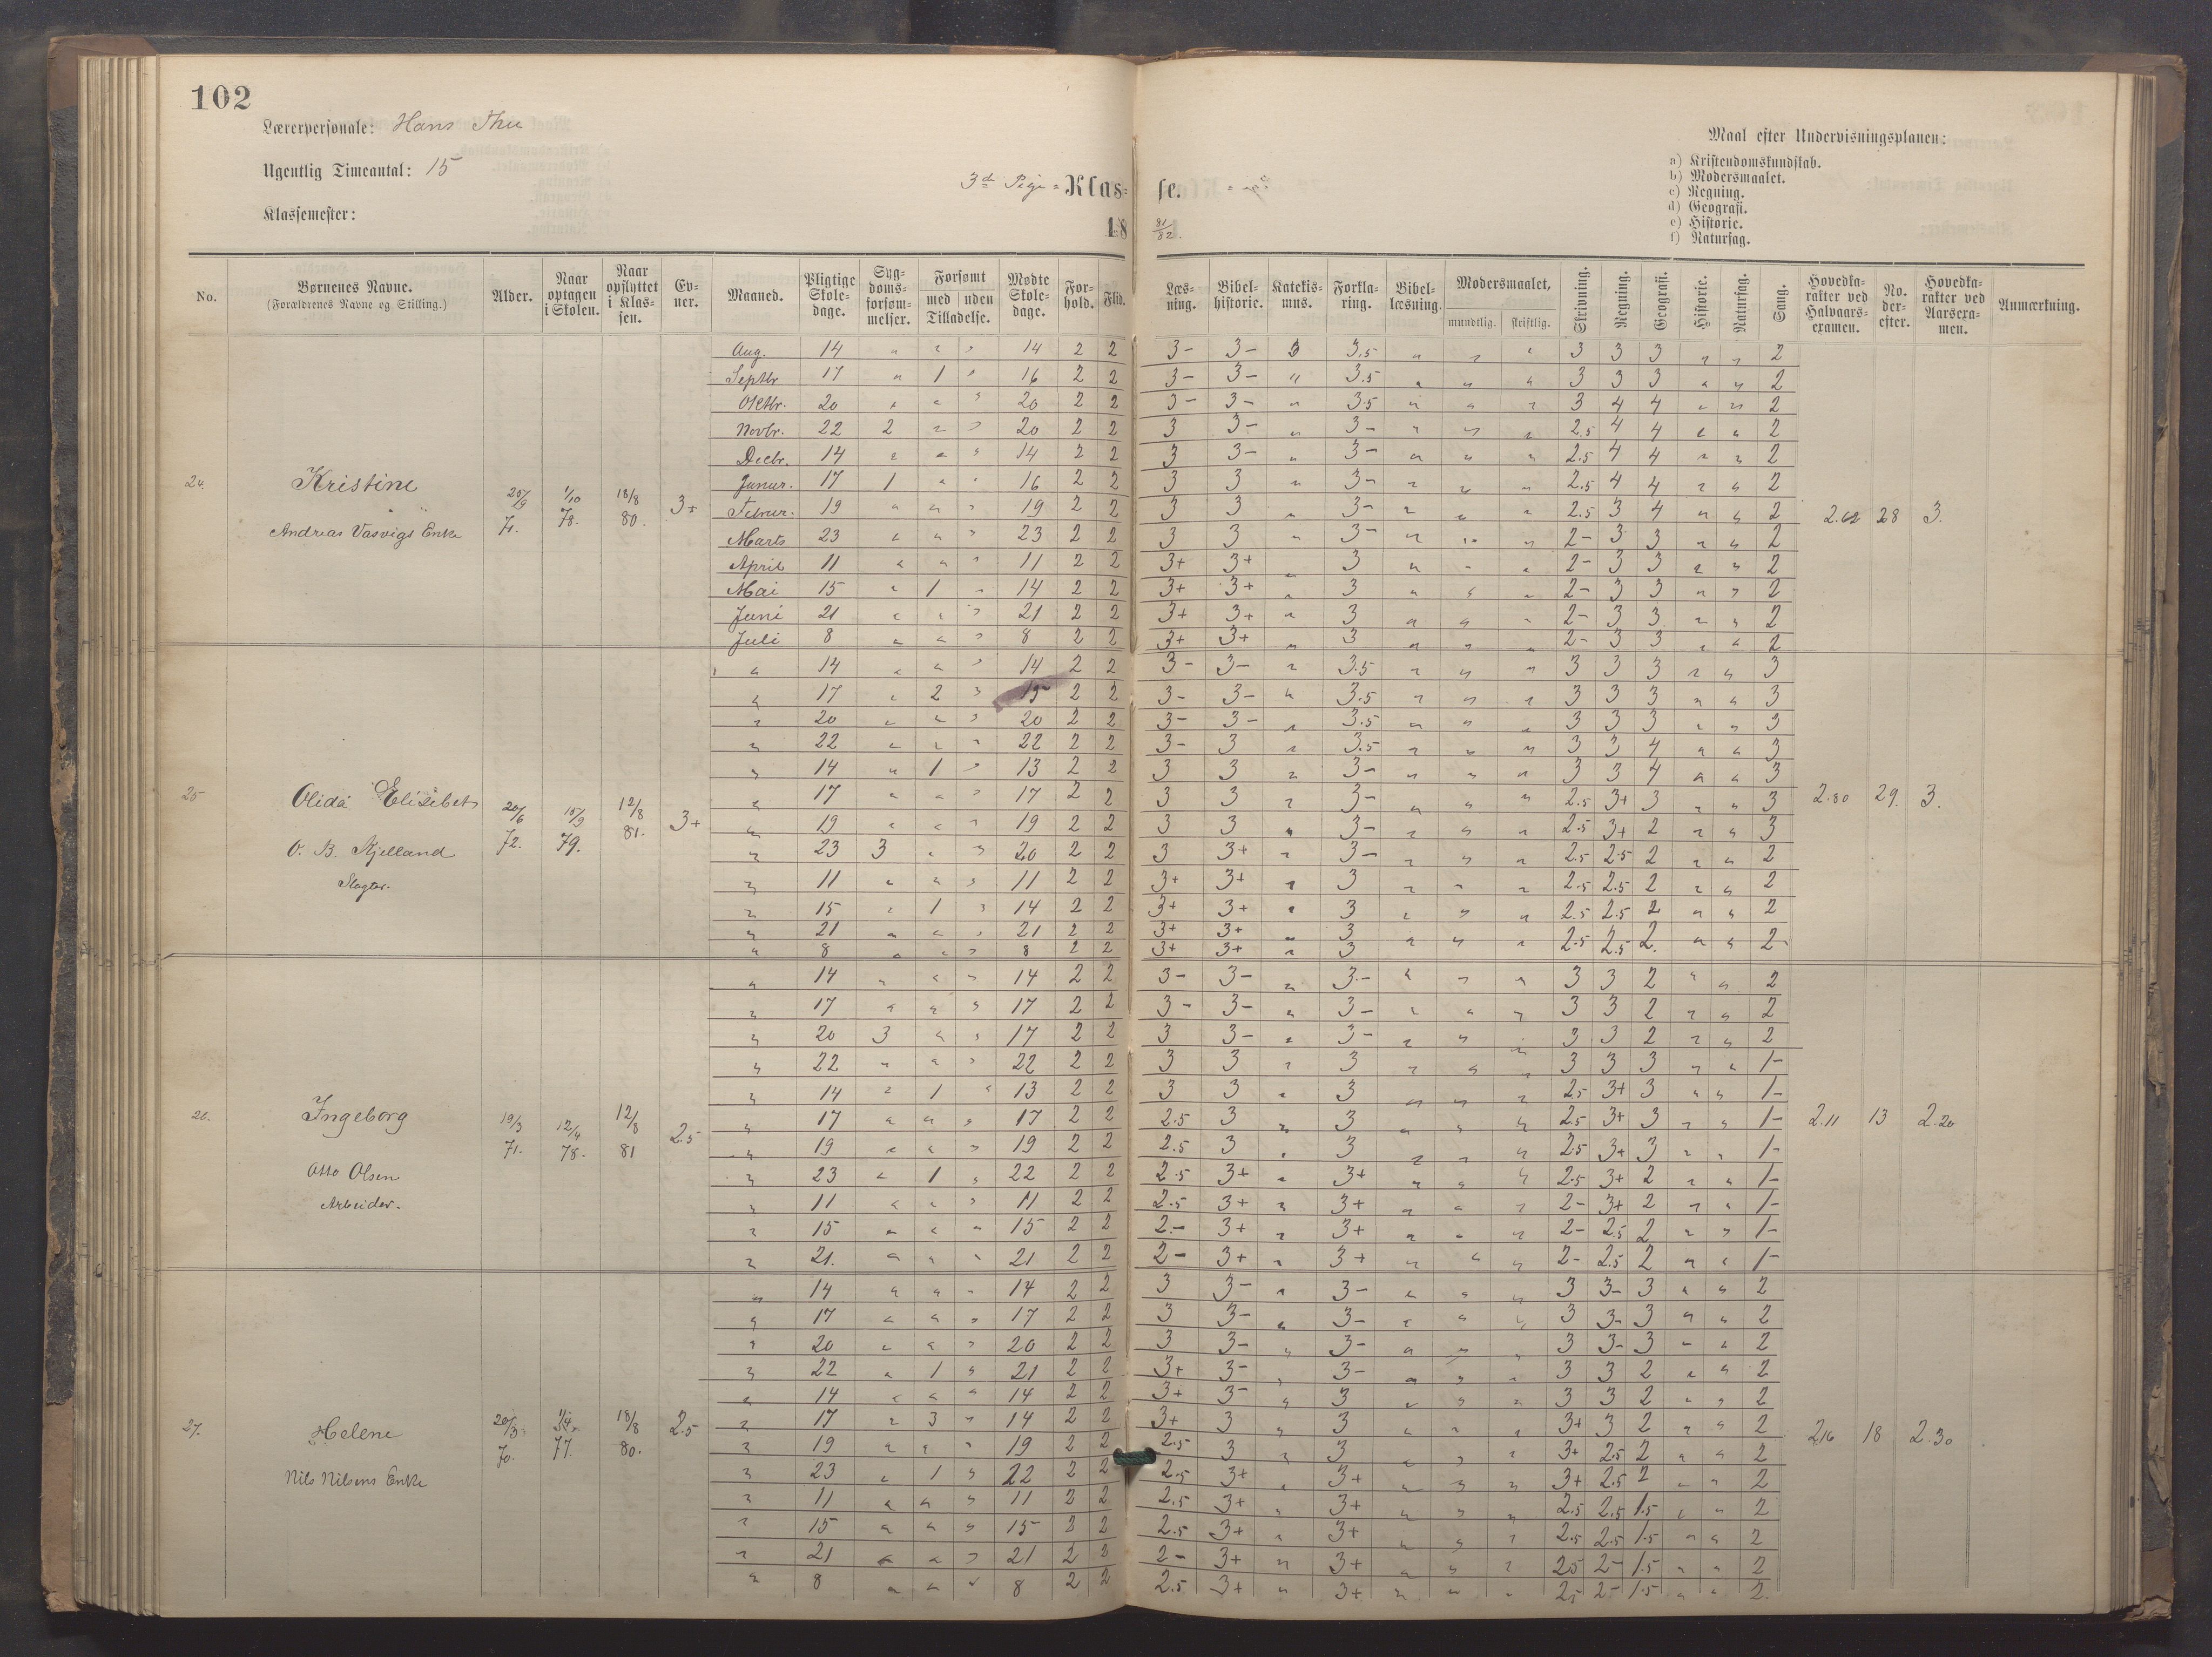 102
Lærerpersonale: Hans Thu
Ugentlig Timeantal: 15
Klassemester:
3die Pige= Klas= se.
18 81/82.
Maal efter Undervisningsplanen:
a) Kristendomskundskab.
b) Modersmaalet.
c) Regning.
d) Geografi.
e) Historie.
f) Naturfag.
No. | Børnenes Navne. (Forældrenes Navne og Stilling.) | Alder. | Naar optagen i Skolen. | Naar opflyttet i Klas- sen. | Ev- ner. | Maaned. | Pligtige Skole- dage. | Syg- doms- forsøm- melser. | Forsømt med uden Tilladelse. | Mødte Skole- dage. | For- hold. | Flid. | Læs- ning. | Bibel- historie. | Katekis- mus. | Forkla- ring. | Bibel- læsning. | Modersmaalet, mundtlig. skriftlig. | Skrivning. | Regning. | Geografi. | Historie. | Naturfag. | Sang. | Hovedka- rakter ved Halvaars- examen. | No. der- efter. | Hovedka- rakter ved Aarsexa- men. | Anmærkning.
24. Kristine
Andreas Vasvigs Enke
20/9 71. 1/10 78. 18/8 80. 3+
Aug. 14 " " " 14 2 2 3- 3- 3 3.5 " " " 3 3 3 " " 2
Septbr 17 " 1 " 16 2 2 3- 3- " 3.5 " " " 3 3 3 " " 2
Oktbr. 20 " " " 20 2 2 3- 3- " 3.5 " " " 3 4 4 " " 2
Novbr. 22 2 " " 20 2 2 3 3- " 3- " " " 2.5 4 4 " " 2
Decbr. 14 " " " 14 2 2 3 3- " 3- " " " 2.5 4 4 " " 2
Januar. 17 1 " " 16 2 2 3 3 " 3- " " " 2.5 4 4 " " 2
Februar. 19 " " " 19 2 2 3 3 " 3- " " " 2.5 3 4 " " 2
Marts 23 " " " 23 2 2 3 3 " 3- " " " 2- 3 3 " " 2
April 11 " " " 11 2 2 3+ 3+ " 3 " " " 2- 3 3 " " 2
Mai 15 " 1 " 14 2 2 3+ 3+ " 3 " " " 2- 3 3 " " 2
Juni 21 " " " 21 2 2 3+ 3+ " 3 " " " 2- 3 3 " " 2
Juli 8 " " " 8 2 2 3+ 3+ " 3 " " " 2- 3 3 " " 2
2.62 28 3.
25 Olida Elisibet
O. B. Kjelland
Slagter.
20/6 72. 15/9 79. 12/8 81. 3+
" 14 " " " 14 2 2 3- 3- " 3.5 " " " 3 3 3 " " 3
" 17 " 2 " 15 2 2 3- 3- " 3.5 " " " 3 3 3 " " 3
" 20 " " " 20 2 2 3- 3- " 3.5 " " " 3 3 3 " " 3
" 22 " " " 22 2 2 3- 3 " 3.5 " " " 3 3 4 " " 3
" 14 " 1 " 13 2 2 3 3 " 3- " " " 3 3 4 " " 3
" 17 " " " 17 2 2 3 3 " 3- " " " 2.5 3+ 3 " " 3
" 19 " " " 19 2 2 3 3 " 3- " " " 2.5 3+ 2 " " 3
" 23 3 " " 20 2 2 3 3+ " 3- " " " 2.5 2.5 2 " " 2
" 11 " " " 11 2 2 3+ 3+ " 3 " " " 2.5 2.5 2 " " 2
" 15 " 1 " 14 2 2 3+ 3+ " 3 " " " 2.5 2.5 2 " " 2
" 21 " " " 21 2 2 3+ 3+ " 3 " " " 2.5 2.5 2. " " 2
" 8 " " " 8 2 2 3+ 3+ " 3
2.80 29. 3.
26. Ingeborg
Otto Olsen
Arbeider.
19/3 71. 12/4 78. 12/8 81 2.5
" 14 " " " 14 2 2 3- 3- " 3- " " " 3 3 2 " " 2
" 17 " " " 17 2 2 3- 3- " 3- " " " 3 3 2 " " 2
" 20 3 " " 17 2 2 3 3- " 3- " " " 3 3 2 " " 2
" 22 " " " 22 2 2 3 3 " 3 " " " 3 3 3 " " 1-
" 14 " 1 " 13 2 2 3 3 " 3 " " " 2.5 3+ 3 " " 1-
" 17 " " " 17 2 2 2.5 3 " 3 " " " 2.5 3+ 3 " " 1-
" 19 " " " 19 2 2 2.5 3 " 3 " " " 2.5 3+ 3 " " 1-
" 23 " 1 " 22 2 2 2.5 3+ " 3+ " " " 2.5 3+ 2 " " 1-
" 11 " " " 11 2 2 2.5 3+ " 3+ " " " 2- 3+ 2 " " 1-
" 15 " " " 15 2 2 2.- 3+ " 3+ " " " 2- 2.5 2 " " 1-
" 21. " " " 21 2 2 2- 3+ " 3+ " " " 2- 2.5 2 " " 1-
2.11 13 2.20
27. Helene
Nils Nilsens Enke
20/3 70. 77. 18/8 80. 2.5
" 14 " " " 14 2 2 3 3- " 3- " " " 3 3- 3 " " 2
" 17 " " " 17 2 2 3 3- " 3- " " " 3 3- 3 " " 2
" 20 " " " 20 2 2 3 3- " 3- " " " 3 3- 3 " " 2
" 22 " 1 " 21 2 2 3+ 3- " 3- " " " 3 3 2 " " 2
" 14 " " " 14 2 2 3+ 3- " 3 " " " 3 3 2 " " 2
" 17 " 3 " 14 2 2 3+ 3 " 3 " " " 3+ 3 2 " " 2
" 19 " " " 19 2 2 2.5 3 " 3 " " " 3+ 2.5 2 " " 2
" 23 " 1 " 22 2 2 2.5 3+ " 3+ " " " 3+ 2.5 2 " " 2
" 11 " " " 11 2 2 2.5 3+ " 3+ " " " 2.5 2.5 1.5 " " 2
" 15 " " " 15 2 2 2.5 3+ " 3+ " " " 2.5 2.5 1.5 " " 2
" 21 " " " 21 2 2 2- 3+ " 3+ " " " 2.5 2- 1.5 " " 2
" 8 " " " 8 2 2 2.5 3+ " 3+ " " " 2.5 2- 1.5 " " 2.
2.16 18 2.30